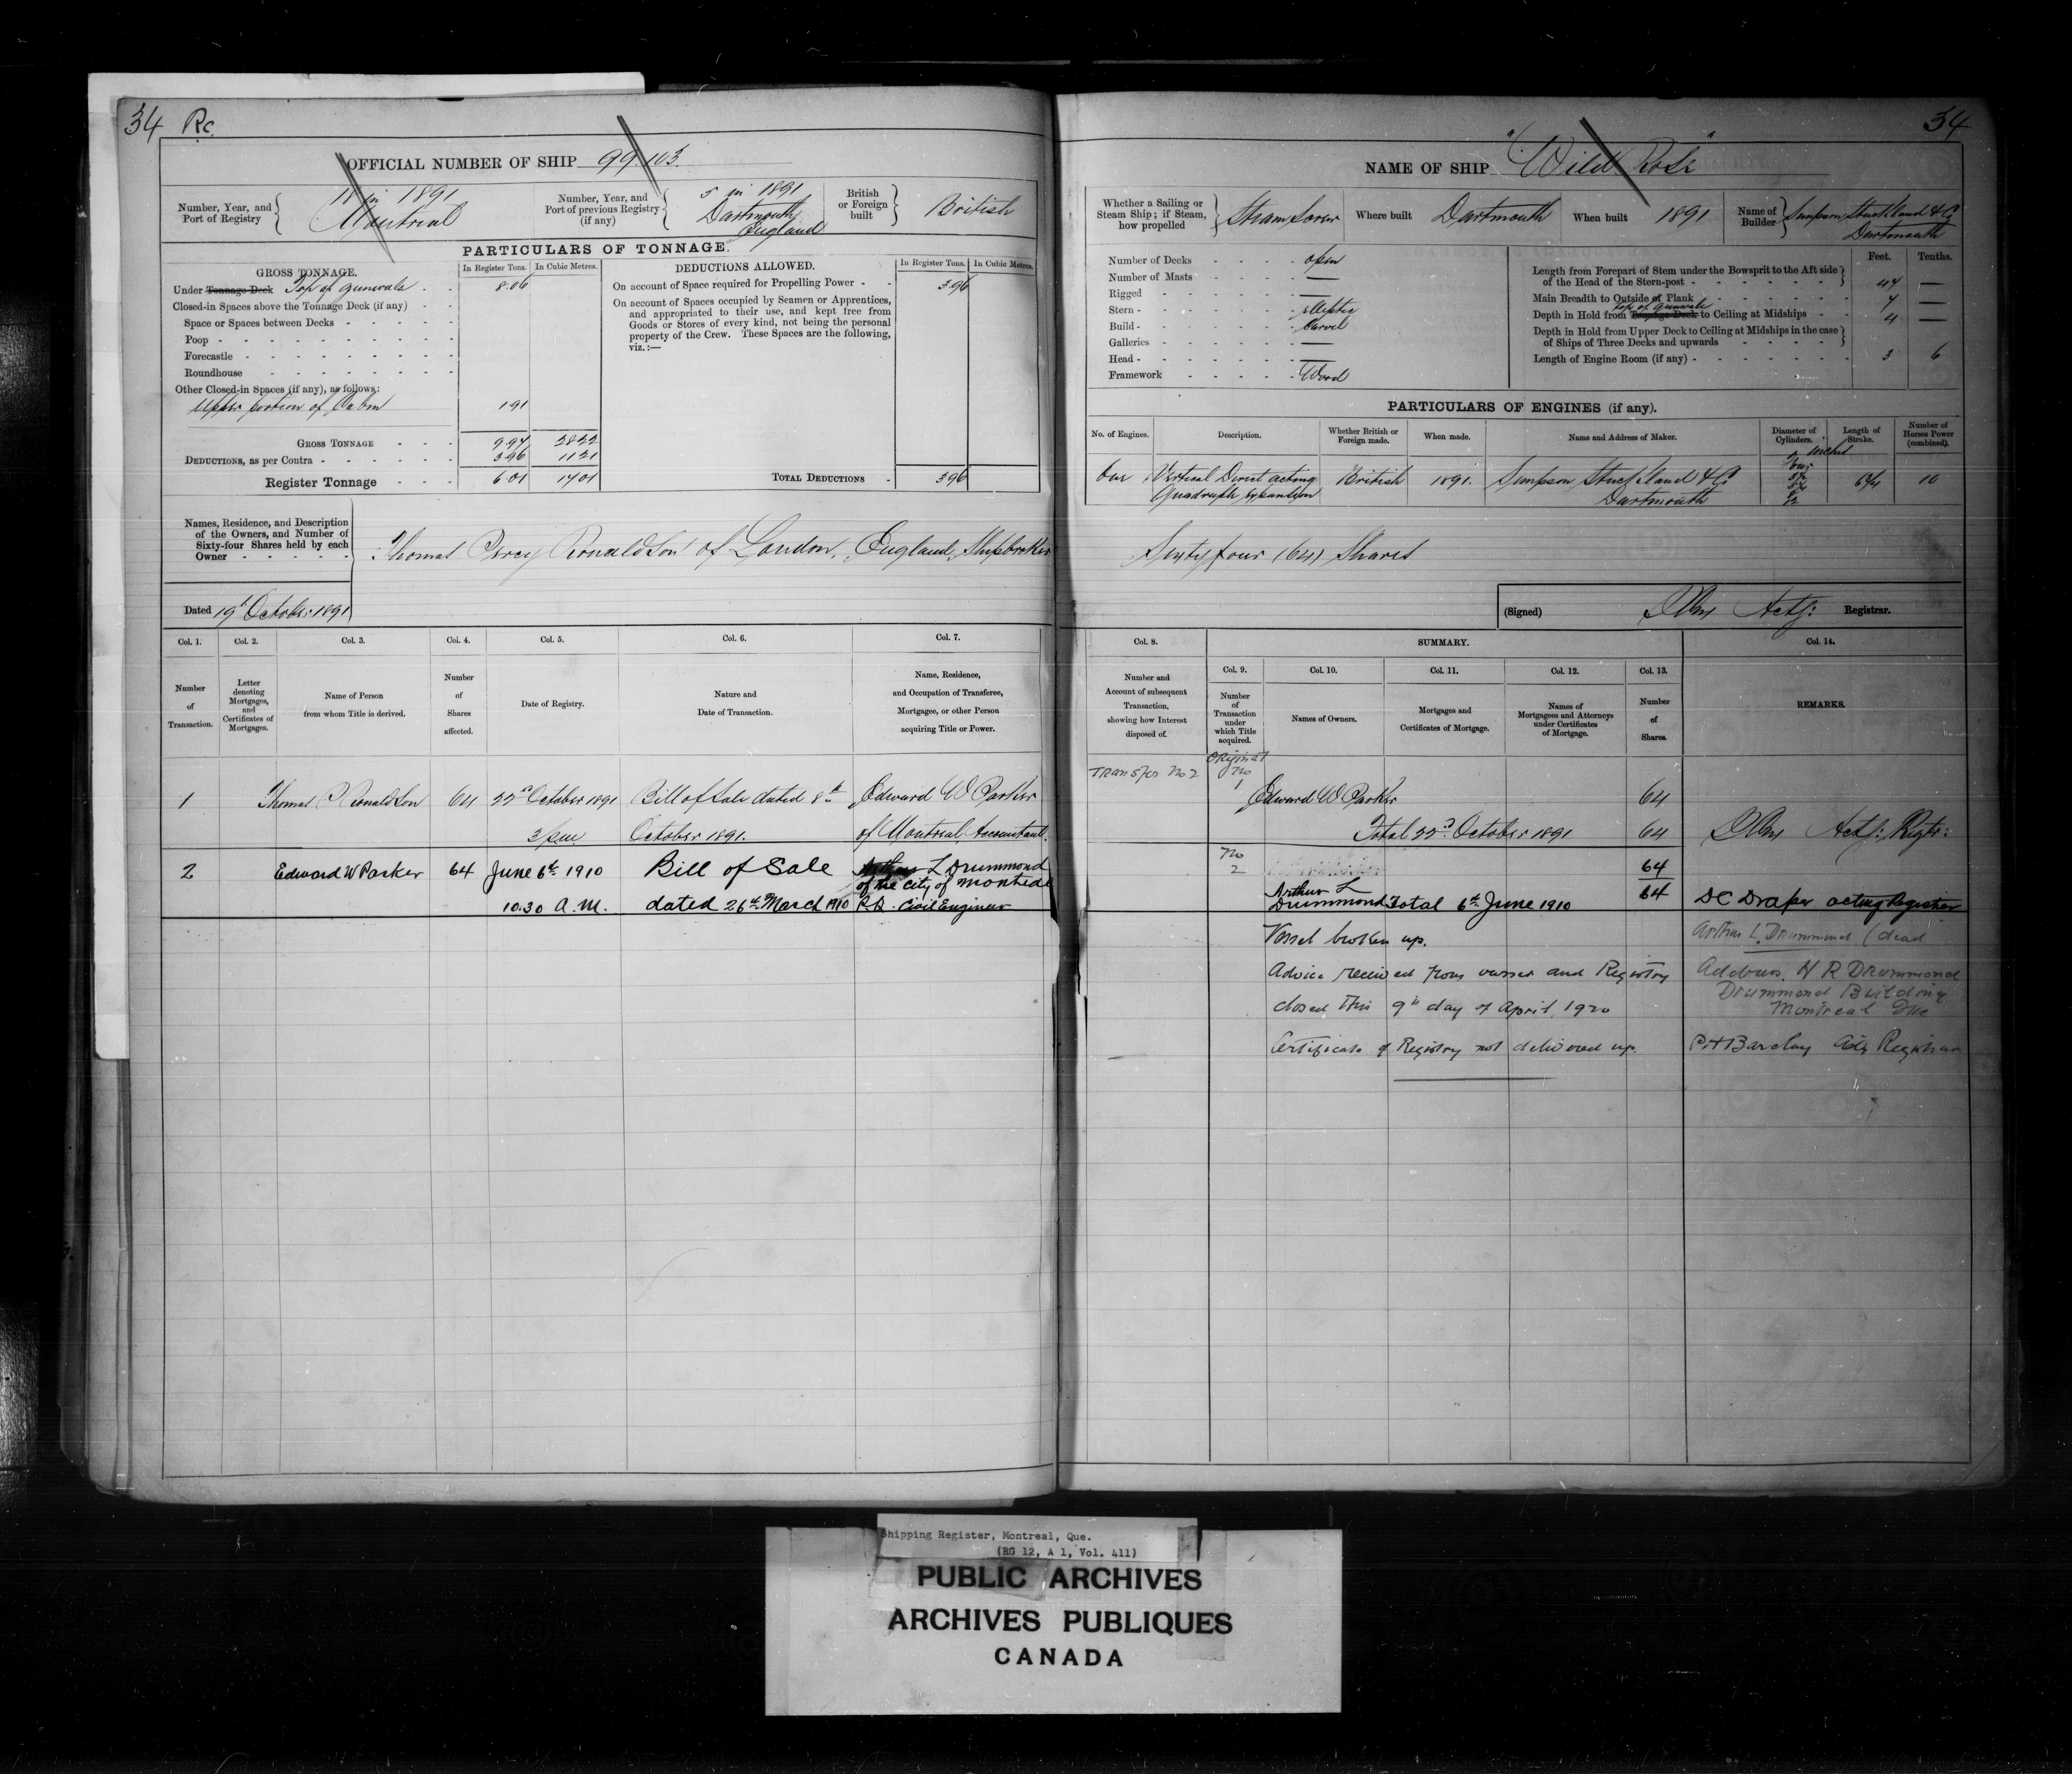 34 Rc.
OFFICIAL NUMBER OF SHIP 99103.
Number, Year, and Port of Registry { 18 in 1891 Montreal
Number, Year, and Port of previous Registry (if any) { 5 in 1891 Dartmouth England
British or Foreign built } British
PARTICULARS OF TONNAGE.
GROSS TONNAGE. In Register Tons. In Cubic Metres.
Under Tonnage Deck Top of gunwale - - 8.06
Closed-in Spaces above the Tonnage Deck (if any) -
Space or Spaces between Decks - - - - -
Poop - - - - - - - - - -
Forecastle - - - - - - - - -
Roundhouse - - - - - - - -
Other Closed-in Spaces (if any), as follows:
Upper portion of Cabin 1.91
GROSS TONNAGE - - - 9.97 28.22
DEDUCTIONS, as per Contra - - - - - - 3.96 11.21
Register Tonnage - - - 6.01 17.01
DEDUCTIONS ALLOWED. In Register Tons. In Cubic Metres.
On account of Space required for Propelling Power - - 3.96
On account of Spaces occupied by Seamen or Apprentices,
and appropriated to their use, and kept free from
Goods or Stores of every kind, not being the personal
property of the Crew. These Spaces are the following,
viz.:—
TOTAL DEDUCTIONS - 3.96
Names, Residence, and Description
of the Owners, and Number of
Sixty-four Shares held by each
Owner - - - - -
Thomas Percy Ronaldson of London, England, Shipbroker
Dated 19th October 1891
Col. 1. Col. 2. Col. 3. Col. 4. Col. 5. Col. 6. Col. 7.
Number of Transaction.
Letter denoting Mortgages, and Certificates of Mortgages.
Name of Person from whom Title is derived.
Number of Shares affected.
Date of Registry.
Nature and Date of Transaction.
Name, Residence, and Occupation of Transferee, Mortgagee, or other Person acquiring Title or Power.
1 Thomas P Ronaldson 64 22d October 1891 Bill of Sale dated 8th Edward W Parker
3 pm October 1891. of Montreal, Accountant.
2 Edward W Parker 64 June 6th 1910 Bill of Sale Arthur L Drummond
of the City of Montreal
10.30 A.M. dated 26th March 1910 P.Q. Civil Engineer
34
NAME OF SHIP "Wild Rose"
Whether a Sailing or Steam Ship; if Steam, how propelled } Steam Screw
Where built Dartmouth
When built 1891
Name of Builder } Simpson Strickland & Co Dartmouth
Number of Decks - - - - open
Number of Masts - - - - —
Rigged - - - - - - —
Stern - - - - - - elliptic
Build - - - - - - Carvel
Galleries - - - - - —
Head - - - - - - —
Framework - - - - - Wood
Feet. Tenths.
Length from Forepart of Stem under the Bowsprit to the Aft side
of the Head of the Stern-post - - - - - - 44 —
Main Breadth to Outside of Plank - - - - - 7 —
Depth in Hold from Tonnage Deck top of gunwale to Ceiling at Midships - - 4 —
Depth in Hold from Upper Deck to Ceiling at Midships in the case
of Ships of Three Decks and upwards - - - - -
Length of Engine Room (if any) - - - - - - 3 6
PARTICULARS OF ENGINES (if any).
No. of Engines. Description. Whether British or Foreign made. When made. Name and Address of Maker. Diameter of Cylinders. Length of Stroke. Number of Horses Power (combined).
One Vertical Direct acting Quadruple Expansion British 1891. Simpson Strickland & Co Dartmouth 10
Sixty four (64) Shares
(Signed) Actg: Registrar.
Col. 8. SUMMARY. Col. 14.
Col. 9. Col. 10. Col. 11. Col. 12. Col. 13.
Number and Account of subsequent Transaction, showing how Interest disposed of.
Number of Transaction under which Title acquired.
Names of Owners.
Mortgages and Certificates of Mortgage.
Names of Mortgagees and Attorneys under Certificates of Mortgage.
Number of Shares.
REMARKS.
Transfer No 2 Original No 1 Edward W Parker 64
Total 22d October 1891 64 Actg: Regtr:
No 2 64
Arthur L Drummond Total 6th June 1910 64 DC Draper acting Registrar
Vessel broken up. Arthur L. Drummond (dead
Advice received from owner and Registry Address. H R Drummond
Drummond Building
closed this 9th day of April 1920 Montreal Que
Certificate of Registry not delivered up. PH Barclay Actg Registrar
Shipping Register, Montreal, Que.
(RG 12, A 1, Vol. 411)
PUBLIC ARCHIVES
ARCHIVES PUBLIQUES
CANADA